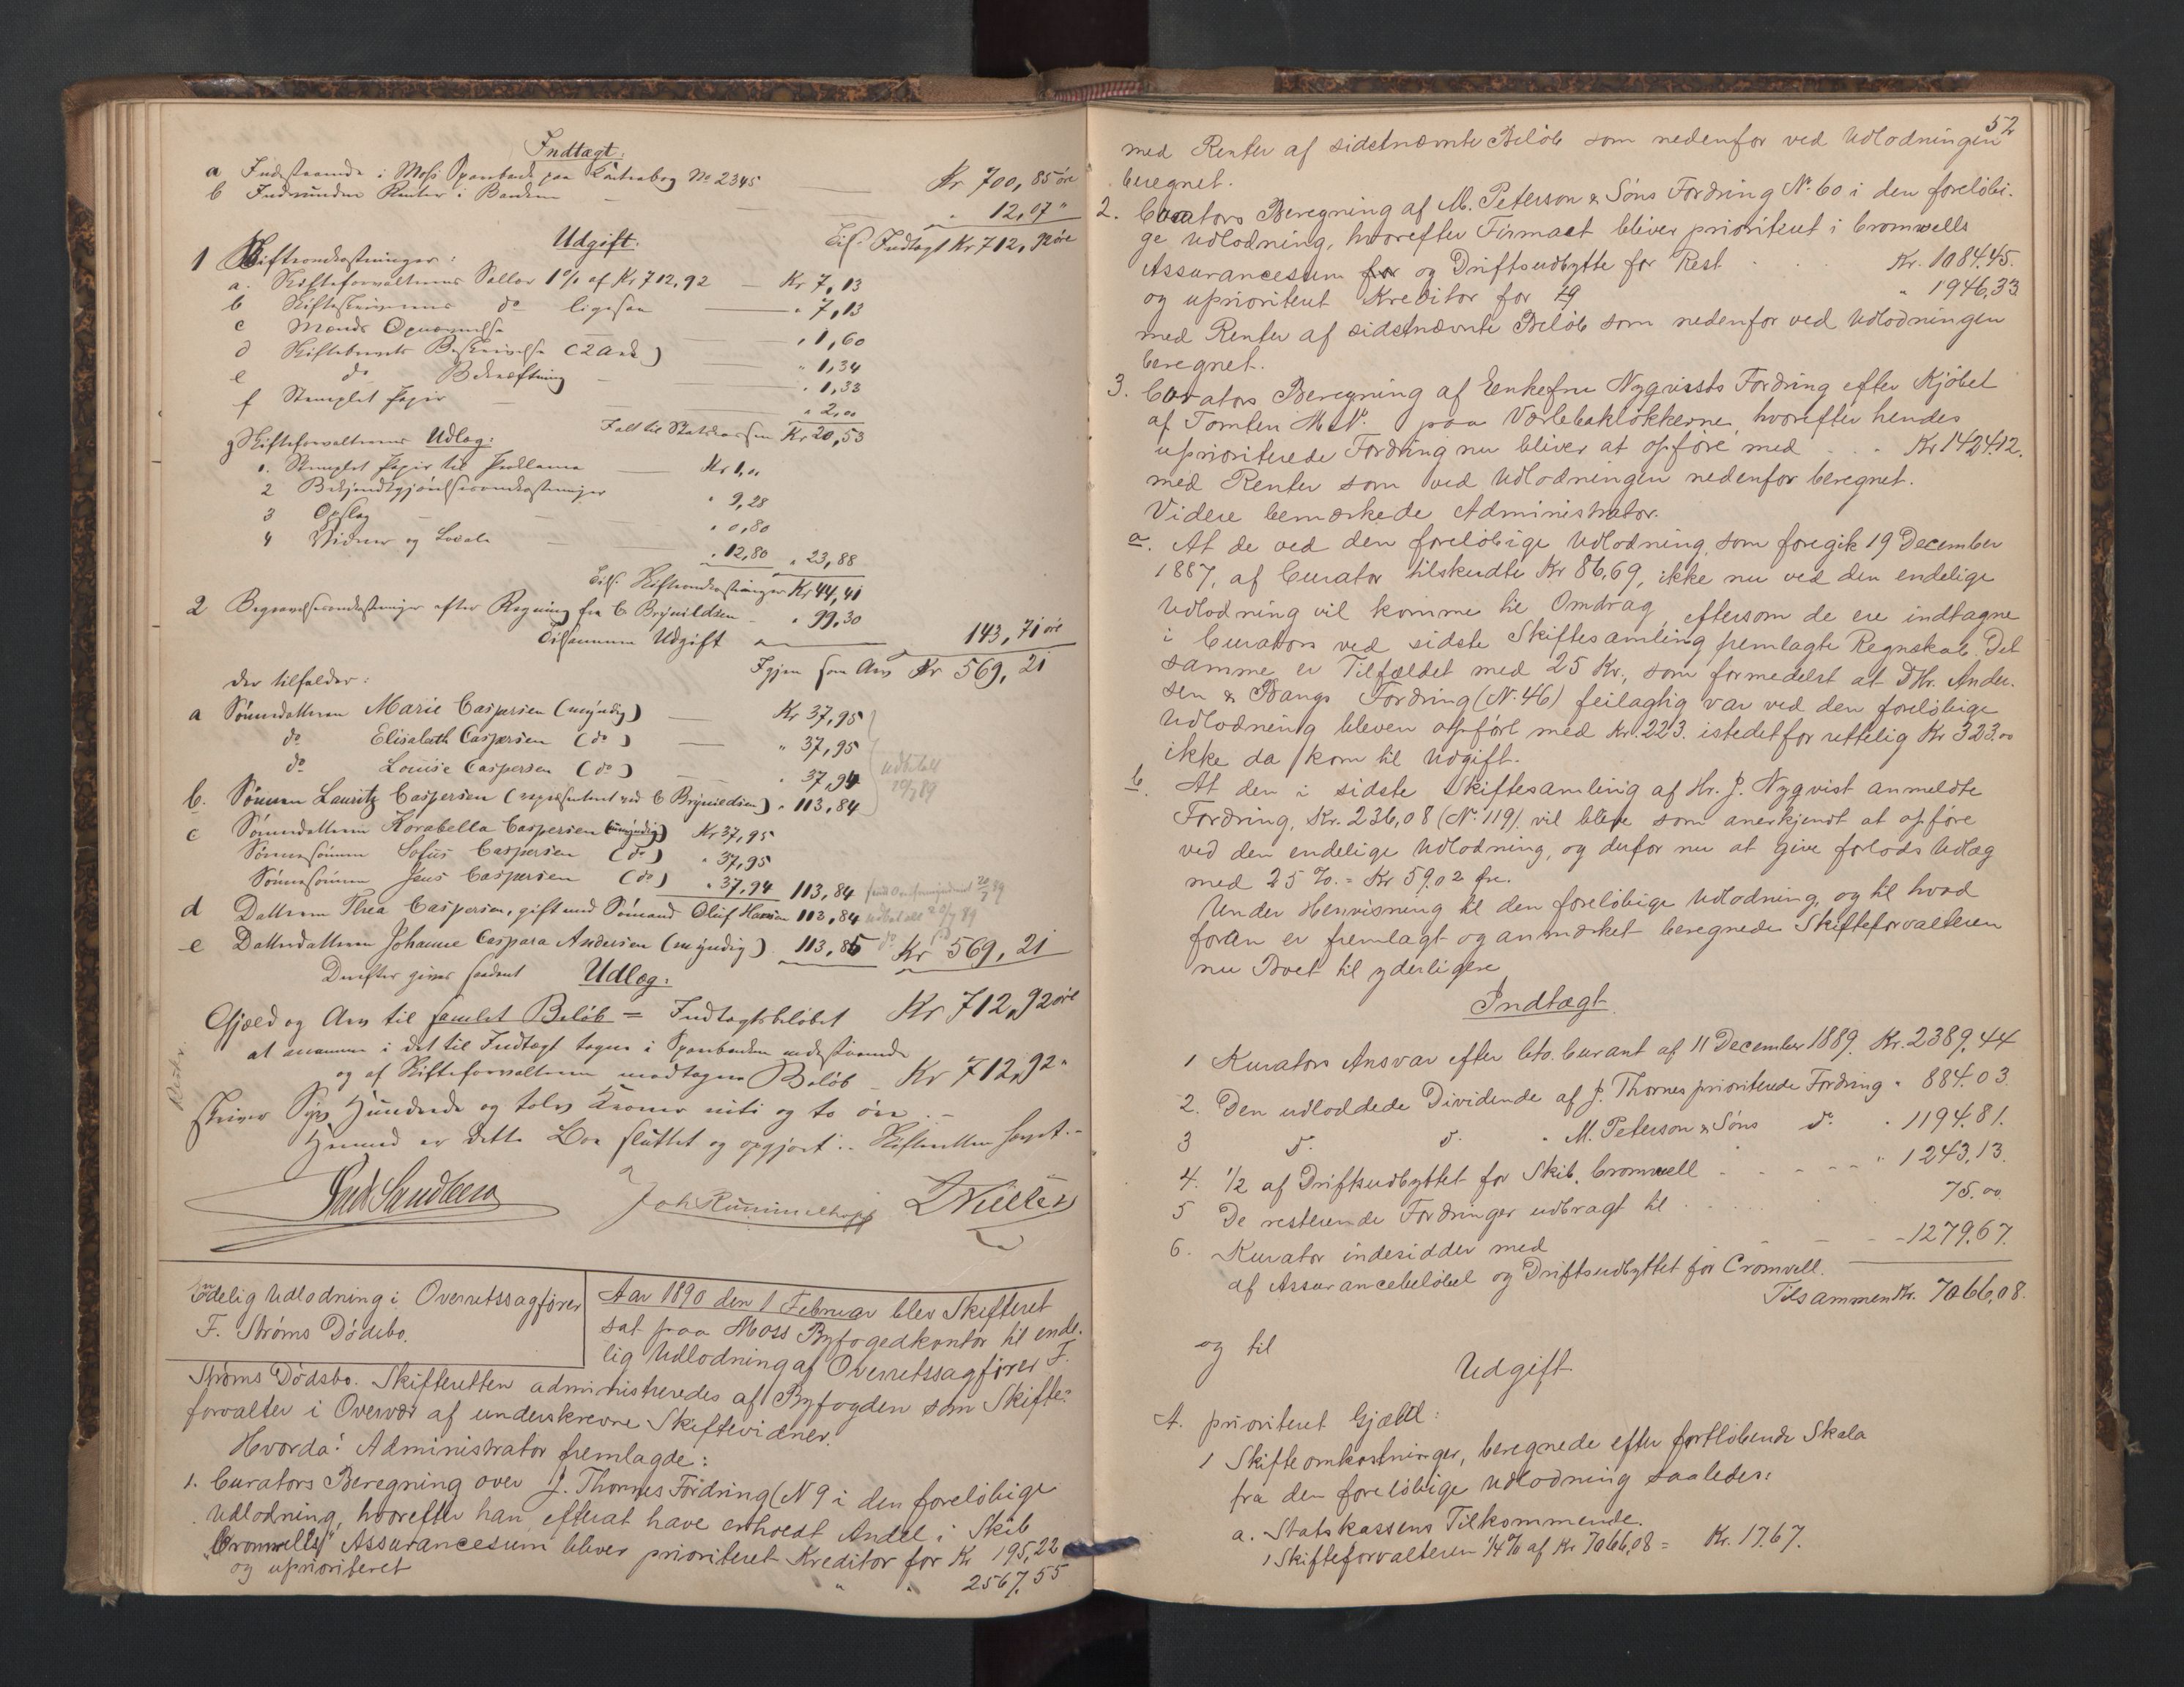 Indtægt:
a Indestaaende i Moss Sparebank paa Contrabog No 2345 — Kr 700,85 øre
b Indvundne Renter i Banken — " 12,07 "
Tils. Indtægt Kr 712,92 øre
Udgift:
1 Skifteomkostninger:
a. Skifteforvalterens Sallær 1% af Kr 712,92 — Kr 7,13
b Skifteskriverens do ligesaa — " 7,13
c Mænds Opnævnelse " 1,60
d Skiftebrevets Beskrivelse (2 Ark) — " 1,34
e do Bekræftning — " 1,33
f Stemplet Papir — " 2,00
Falt til Statskassen Kr 20,53
g Skifteforvalterens Udlæg:
1. Stemplet Papir til Proklama — Kr 1,00
2 Bekjendtgjørelsesomkostninger " 9,28
3 Opslag — " 0,80
4 Vidner og Locale — " 12,80 " 23,88
Tils. Skifteomkostninger Kr 44,41
2 Begravelsesomkostninger efter Regning fra C Brynildsen — " 99,30
Tilsammen Udgift — 143,71 øre
Igjen som Arv Kr 569,21
der tilfalder:
a Sønnedatteren Marie Caspersen (myndig) — Kr 37,95
do Elisabeth Caspersen (do) — " 37,95
do Louise Caspersen (do) — " 37,94
udbetalt
b. Sønnen Lauritz Caspersen (repræsenteret ved C Brynildsen) " 113,84
c Sønnedatteren Korabella Caspersen (umyndig) Kr 37,95
Sønnesønnen Sofus Caspersen (do) " 37,95
Sønnesønnen Jens Caspersen (do) " 37,94 113,84
d Datteren Thea Caspersen, gift med Sømand Oluf Hansen 113,84 udbetalt
e Datterdatteren Johanne Caspara Andersen (myndig) 113,85 do Kr 569,21
Derefter gives saadant Udlæg:
Gjæld og Arv til samlet Beløb = Indtægtsbeløbet Kr 712,92 øre
at annamme i det til Indtægt tagne i Sparebanken indestaaende
og af Skifteforvalteren modtagne Beløb — Kr 712,92 "
skriver Syv Hundrede og tolv Kroner niti og to øre. –
Hermed er dette Bo sluttet og opgjort. – Skifteretten hævet. –
Joh Rummelhoff
Endelig Udlodning i Overretssagfører
F. Strøms Dødsbo.
Aar 1890 den 1 Februar blev Skifteret
sat paa Moss Byfogedkontor til ende-
lig Udlodning af Overretssagfører F.
Strøms Dødsbo. Skifteretten administreredes af Byfogden som Skifte-
forvalter i Overvær af underskrevne Skiftevidner.
Hvorda: Administrator fremlagde:
1. Curators Beregning over J. Thornes Fordring (N 9 i den foreløbige
Udlodning, hvorefter han efterat have erholdt Andel i Skib
"Cromwells" Assurancesum bliver prioriteret Kreditor for Kr 195,22
og uprioriteret " " 2567,55
52
med Renter af sidstnævnte Beløb som nedenfor ved Udlodningen
beregnet.
2. Curators Beregning af M. Peterson & Søns Fordring No 60 i den foreløbi-
ge Udlodning, hvorefter Firmaet bliver prioriteret i Cromwells
Assurancesum for og Driftsudbytte for Rest . . Kr. 1084.45.
og uprioriteret Kreditor for " 1946,33
med Renter af sidstnævnte Beløb som nedenfor ved Udlodningen
beregnet.
3. Curators Beregning af Enkefru Nyqvists Fordring efter Kjøbet
af Tomten M.No. paa Værlebakløkkerne, hvorefter hendes
uprioriterede Fordring nu bliver at opføre med . . . Kr 1424.12.
med Renter som ved Udlodningen nedenfor beregnet.
Videre bemærkede Administrator.
a. At de ved den foreløbige Udlodning, som foregik 19 December
1887, af Curator tilskudte Kr 86,69, ikke nu ved den endelige
Udlodning vil komme til Omdrag, eftersom de ere indtagne
i Curators ved sidste Skiftesamling fremlagte Regnskab. Det
samme er Tilfældet med 25 Kr., som formedelst at DHr. Ander-
sen & Bangs Fordring (No 46) feilagtig var ved den foreløbige
Udlodning bleven opført med Kr. 223. istedetfor rettelig Kr 323.00
ikke da kom til Udgift.
b. At den i sidste Skiftesamling af Hr. J. Nyqvist anmeldte
Fordring, Kr. 236,08 (No 119) vil blive som anerkjendt at opføre
ved den endelige Udlodning, og derfor nu at give forlods Udlæg
med 25 %. = Kr 59.02 Øre.
Under Henvisning til den foreløbige Udlodning, og til hvad
foran er fremlagt og anmærket beregnede Skifteforvalteren
nu Boet til yderligere
Indtægt
1 Kurators Ansvar efter Cto. Curant af 11 December 1889. Kr. 2389,44
2. Den udloddede Dividende af J. Thornes prioriterede Fordring " 884.03.
3 do. do. " M. Peterson & Søns do. " 1194.81.
4. 1/2 af Driftsudbyttet for Skib. Cromwell . – – – " 1243,13.
5 De resterende Fordringer udbragt til . . . . 75.00
6. Kurator indesidder med – – – 1279,67.
af Assurancebeløbet og Driftsudbyttet for Cromwell.
Tilsammen Kr. 7066,08.
og til
Udgift
A. prioriteret Gjæld:
1 Skifteomkostninger, beregnede efter fortløbende Skala
fra den foreløbige Udlodning saaledes:
a. Statskassens Tilkommende.
1 Skifteforvalteren 1/4 % af Kr 7066,08 = Kr. 17.67.